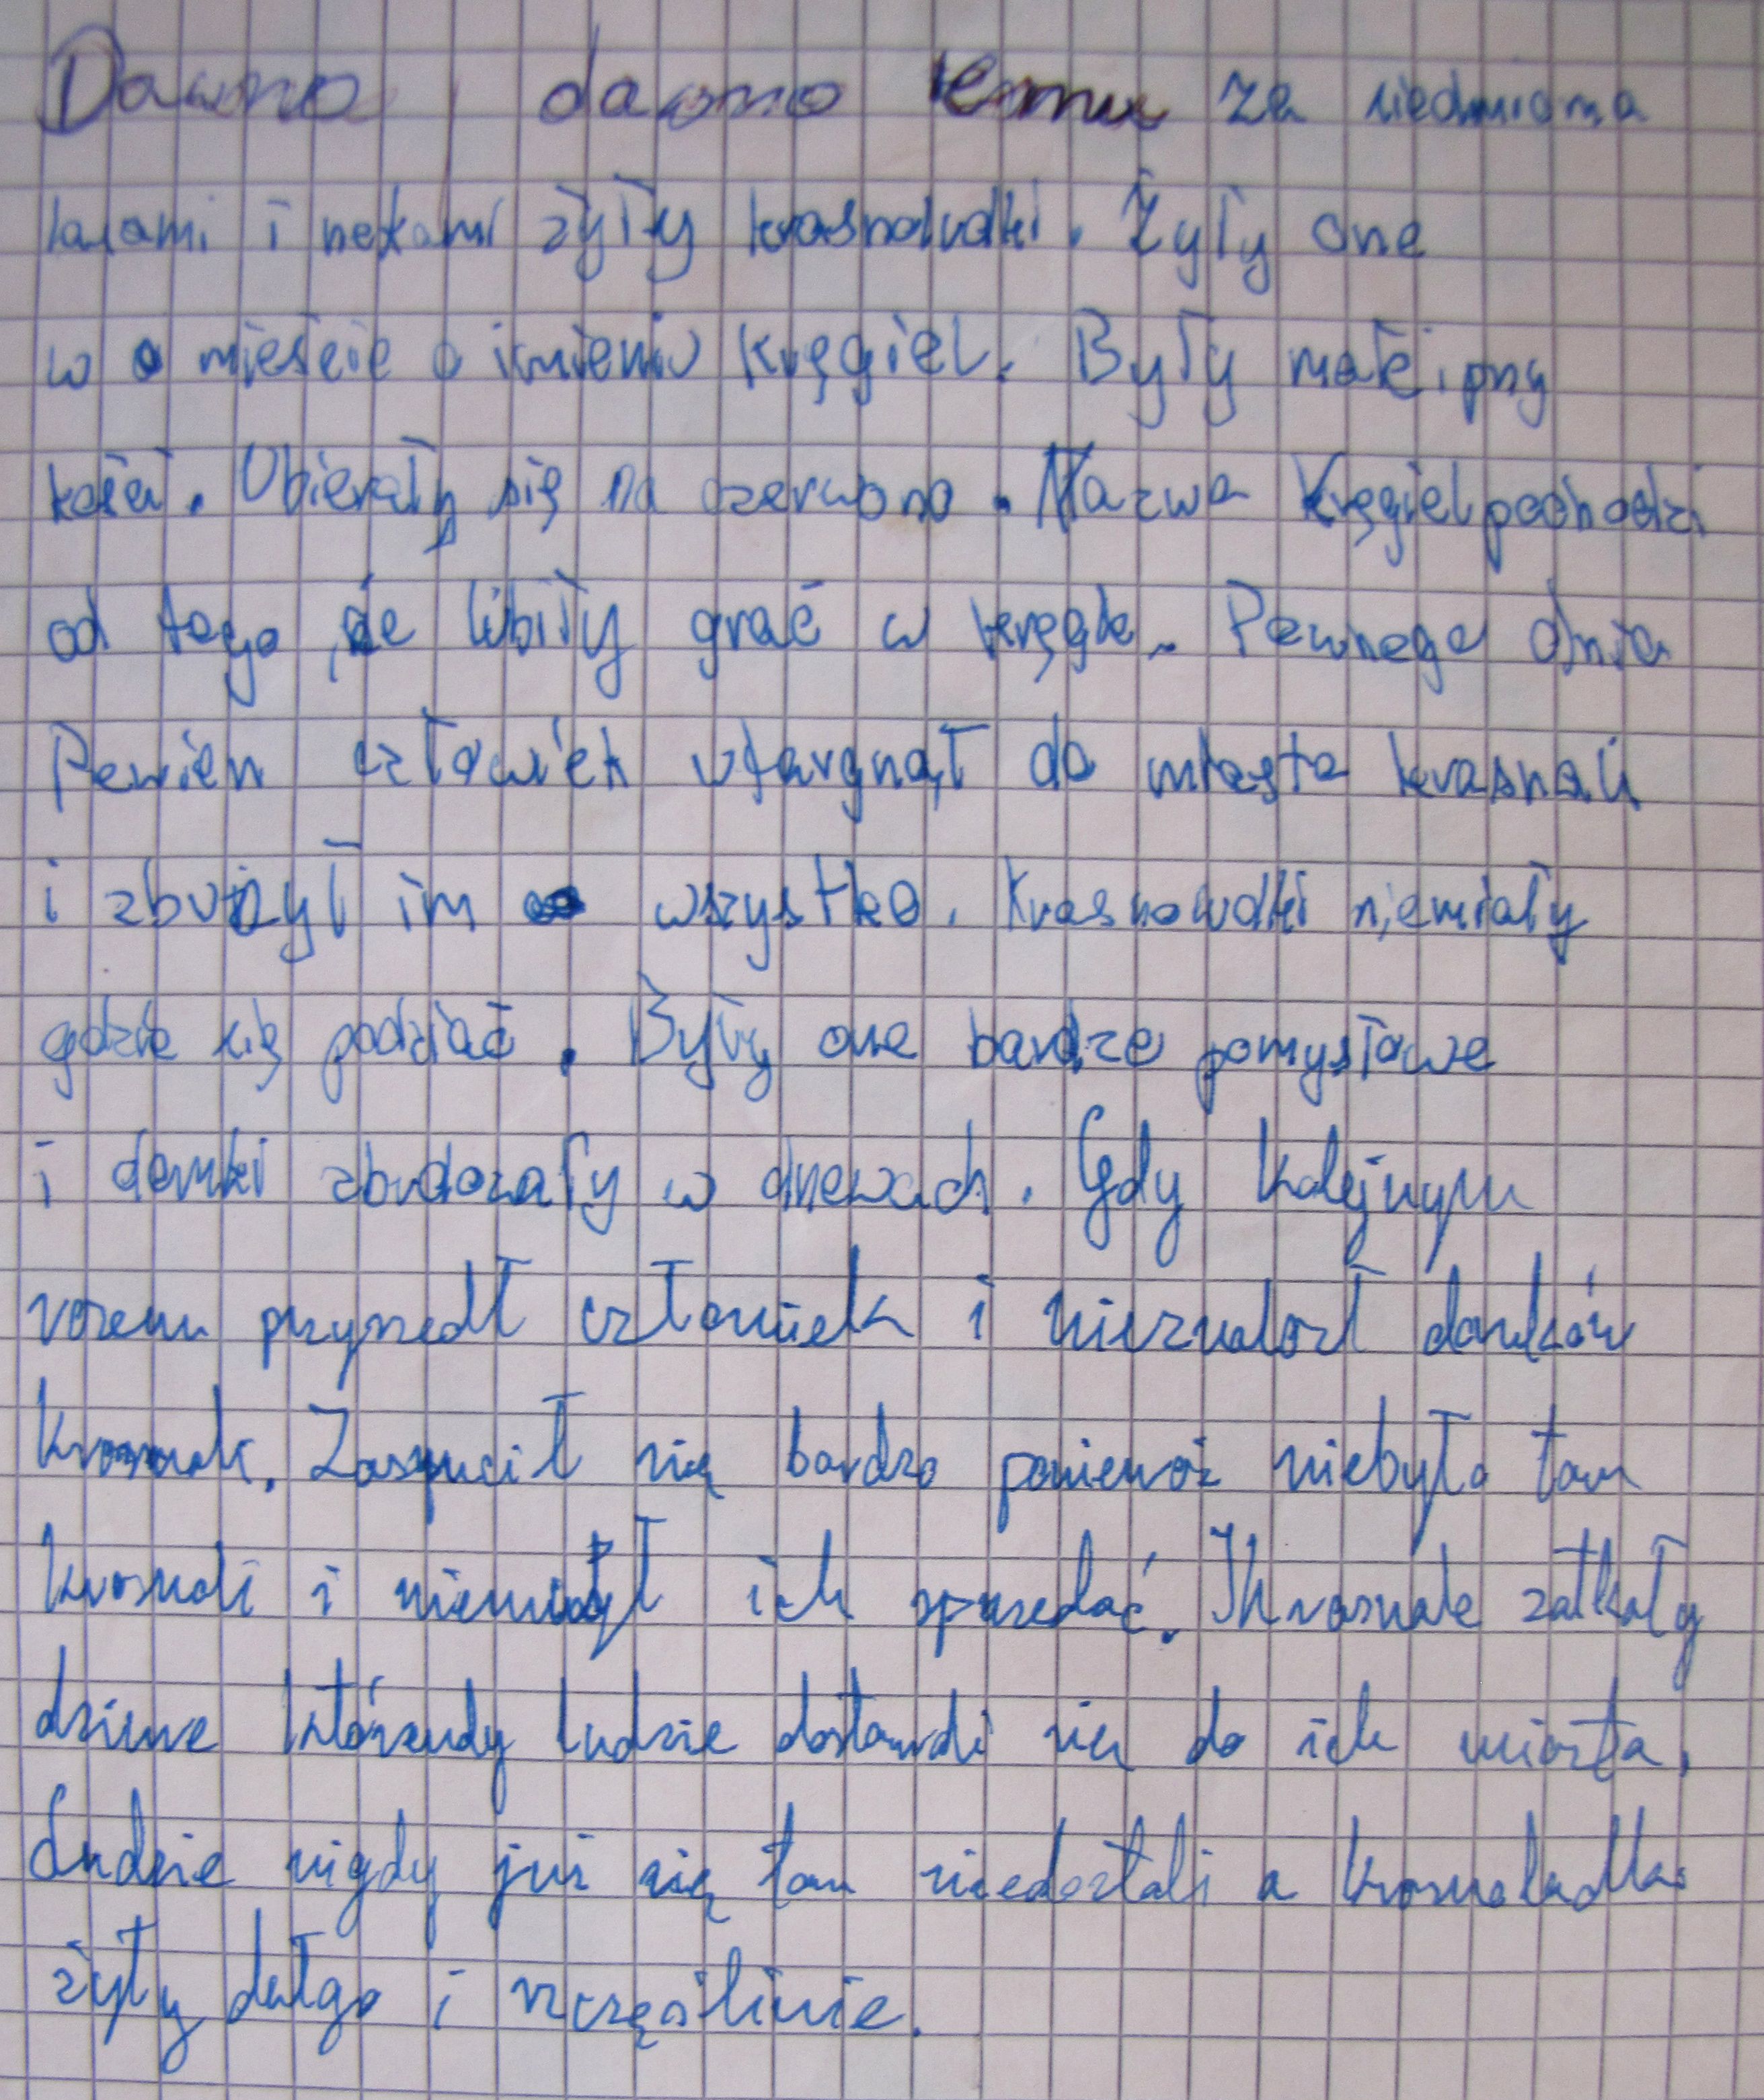 Dawno, dawno temu za siedmioma
lasami i rzekami żyły krasnoludki. Żyły one
w mieście o imieniu Kręgiel. Były małe i przy
kości. Ubierały się na czerwono. Nazwa Kręgiel pochodzi
od tego, że lubiły grać w kręgle. Pewnego dnia
Pewien człowiek wtargnął do miasta krasnali
i zbużył im wszystko. Krasnowdki niemiały
gdzie się podziać. Były one bardzo pomysłowe
i domki zbudowały w drzewach. Gdy kolejnym
razem przyszedł człowiek i nieznalazł domków
krasnali. Zasmucił się bardzo ponieważ niebyło tam
krasnali i niemógł ich sprzedać. Krasnale zatkały
dziure którendy ludzie dostawali się do ich miasta.
Ludzie nigdy już się tam niedostali a krasnoludki
żyły długo i szczęśliwie.